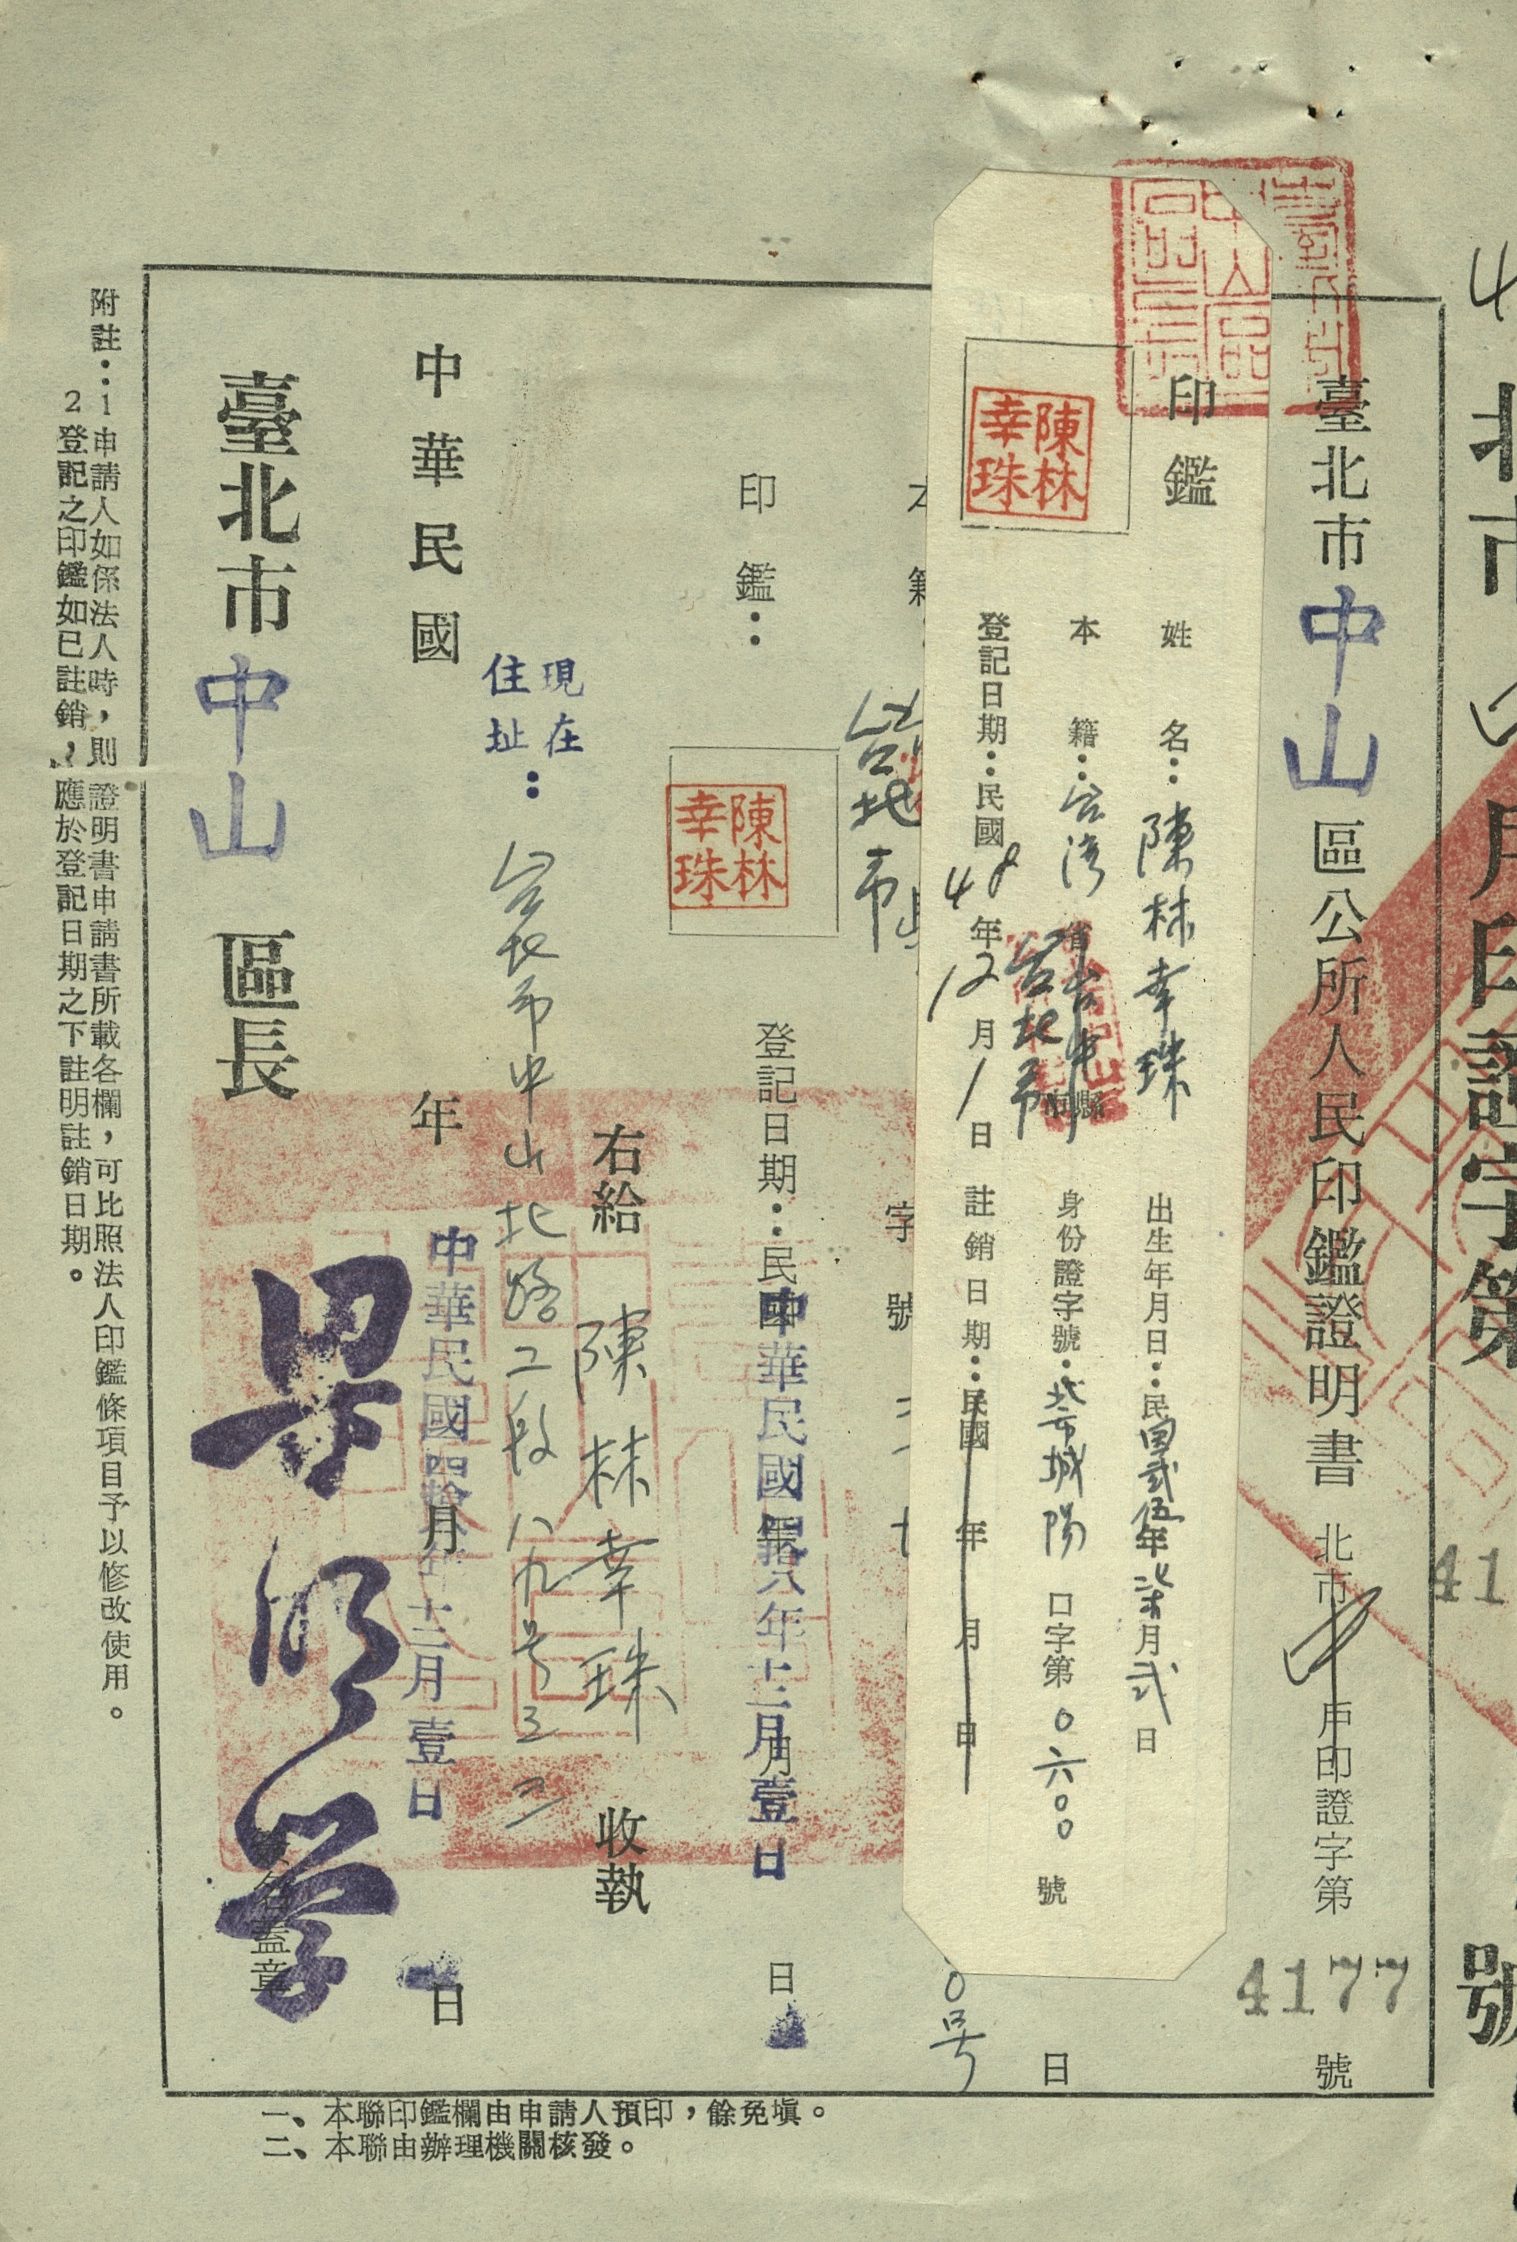 臺北市中山區公所人民印鑑證明書 北市中戶印證字第4177號
印鑑
陳林幸珠
姓名:陳林幸珠 出生年月日:民國貳伍年柒月弍日
本籍:台湾省台北市 身份證字號:北市城陽口字第0六00號
登記日期:民國48年12月1日 註銷日期:民國 年 月 日
日
本籍
台北市
字 號
0号
印鑑:
陳林幸珠
登記日期:民國 年 月 日
中華民國四拾八年十二月壹日
右給 陳林幸珠 收執
現在住址:台北市中山北路二段八九号之二
中華民國 年 月 日
中華民國四拾八年十二月壹日
臺北市中山區長
蓋章
附註:1申請人如係法人時,則證明書申請書所載各欄,可比照法人印鑑條項目予以修改使用。
2登記之印鑑如已註銷,應於登記日期之下註明註銷日期。
一、本聯印鑑欄由申請人預印,餘免塡。
二、本聯由辦理機關核發。